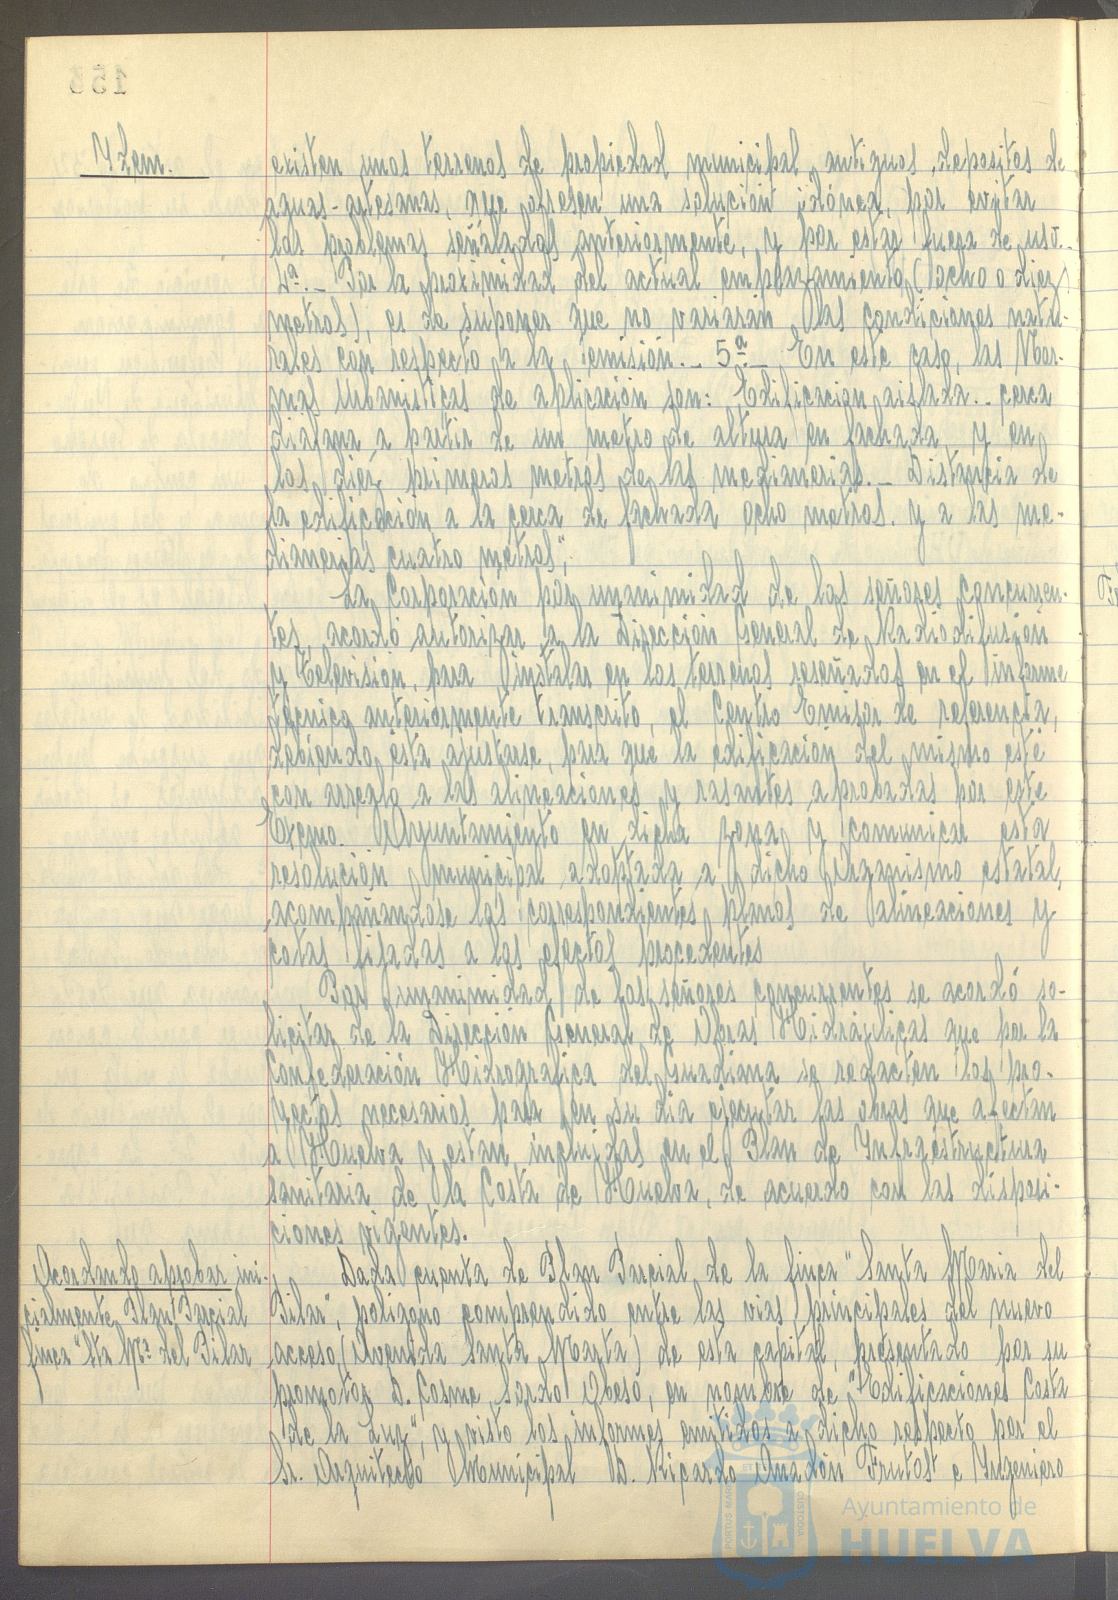 153
Ydem.
existen unos terrenos de propiedad municipal, antiguos depositos de
aguas-artesanas, que ofrecen una solución idónea, por evitar
los problemas señalados anteriormente, y por estar fuera de uso.-
4ª.- Por la proximidad del actual emplazamiento (ocho o diez
metros), es de suponer que no variarán las condiciones natu-
rales con respecto a la emisión.- 5ª.- En este caso, las Nor-
mas Urbanisticas de aplicación son: Edificacion aislada.- cerca
diafana a partir de un metro de altura en fachada y en
los diez primeros metros de las medianerias.- Distancia de
la edificación a la cerca de fachada ocho metros y a las me-
dianerias cuatro metros".
La Corporación por unanimidad de los señores concurren-
tes, acordó autorizar a la Dirección General de Radiodifusión
y Televisión, para instalar en los terrenos reseñados en el informe
técnico anteriormente transcrito, el Centro Emisor de referencia,
debiendo ésta ajustarse, para que la edificación del mismo esté
con arreglo a las alineaciones y rasantes aprobadas por este
Excmo. Ayuntamiento en dicha zona y comunicar esta
resolución municipal adoptada a dicho Organismo estatal,
acompañandose las correspondientes planos de alineaciones y
cotas fijadas a los efectos procedentes
Por unanimidad de los señores concurrentes se acordó so-
licitar de la Dirección General de Obras Hidráulicas que por la
Confederación Hidrografica del Guadiana se redacten los pro-
yectos necesarios para en su dia ejecutar las obras que afectan
a Huelva y estan incluidas en el Plan de Infraestructura
sanitaria de la Costa de Huelva, de acuerdo con las disposi-
ciones vigentes.
Acordando aprobar ini-
cialmente Plan Parcial
finca "Sta Mª del Pilar
Dada cuenta de Plan Parcial de la finca "Santa Maria del
Pilar", poligono comprendido entre las vias principales del nuevo
acceso (Avenida Santa Marta) de esta capital, presentado por su
promotor D. Cosme Sordo Obeso, en nombre de "Edificaciones Costa
de la Luz", y visto los informes emitidos a dicho respecto por el
Sr. Arquitecto Municipal D. Ricardo Anadón Frutos e Ingeniero
PORTUS MARIS ET TERRAE CUSTODIA
Ayuntamiento de
HUELVA